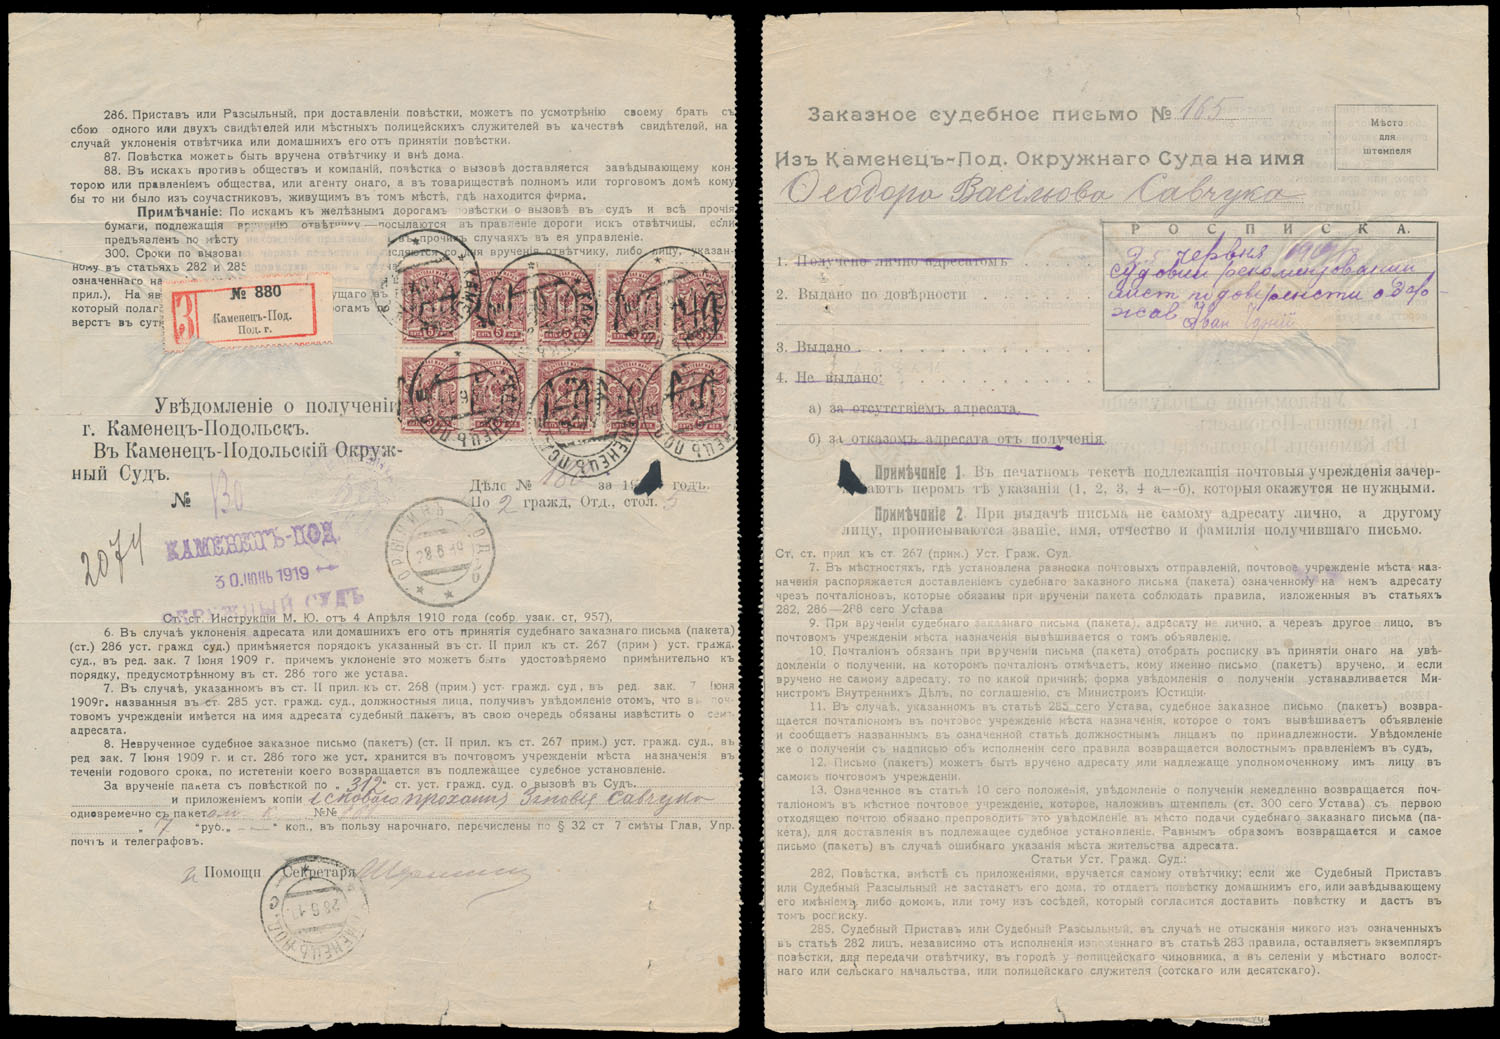 286. Приставъ или Разсыльный, при доставленіи повѣстки, можетъ по усмотрѣнію своему брать съ
сбою одного или двухъ свидѣтелей или мѣстныхъ полицейскихъ служителей въ качествѣ свидѣтелей, на
случай уклонения отвѣтчика или домашнихъ его отъ принятіи повѣстки.
87. Повѣстка можетъ быть вручена отвѣтчику и внѣ дома.
88. Въ искахъ противъ обществъ и компаній, почѣстка о вызовѣ доставляется завѣдывающему кон-
торою или правленіемъ общества, или агенту онаго, а въ товариществѣ полномъ или торговомъ домѣ кому
бы то ни было изъ соучастниковъ, живущимъ въ томъ мѣстѣ, гдѣ находится фирма.
Примѣчаніе: По искамъ къ желѣзнымъ дорогамъ повѣстки о вызовѣ въ судъ и всѣ прочія
бумаги, подлежащія врученію отвѣтчику—посылаются въ правленіе дороги искъ отвѣтчицы, если
предъявленъ по мѣсту въ прочихъ случаяхъ въ ея управленіе.
300. Сроки по вызовамъ исчисляются со дня врученія отвѣтчику, либо лицу, указан-
ному въ статьяхъ 282 и 285
означеннаго на
прил.). На яв
который полаг
верстъ въ сутк
З
№ 880
Каменецъ-Под.
Под. г.
Увѣдомленіе о полученіи
г. Каменецъ-Подольскъ.
Въ Каменецъ-Подольскій Окруж-
ный Судъ.
№ 130
Дѣло № за 19 годъ.
По 2 гражд, Отд., стол. 5
2074
КАМЕНЕЦЪ-ПОД.
30.ІЮНЬ 1919
ОКРУЖНЫЙ СУДЪ
28.6.19
Ст. ст. Инструкціи М. Ю. отъ 4 Апрѣля 1910 года (собр. узак. ст, 957),
6. Въ случаѣ уклоненія адресата или домашнихъ его отъ принятія судебнаго заказнаго письма (пакета)
(ст.) 286 уст. гражд суд.) примѣняется порядокъ указанный въ ст. II прил къ ст. 267 (прим) уст. гражд.
суд., въ ред. зак. 7 Іюня 1909 г. причемъ уклоненіе это можетъ быть удостовѣряемо примѣнительно къ
порядку, предусмотрѣнному въ ст. 286 того же устава.
7. Въ случаѣ, указанномъ въ ст. II прил. къ ст. 268 (прим.) уст гражд. суд, въ ред. зак. 7 Іюня
1909г. названныя въ ст. 285 уст. гражд. суд., должностныя лица, получивъ увѣдомленіе отомъ, что въ поч-
товомъ учрежденіи имѣется на имя адресата судебный пакетъ, въ свою очередь обязаны извѣстить о семъ
адресата.
8. Неврученное судебное заказное письмо (пакетъ) (ст. II прил. къ ст. 267 прим.) уст. гражд. суд., въ
ред зак. 7 Іюня 1909 г. и ст. 286 того же уст. хранится въ почтовомъ учрежденіи мѣста назначенія въ
теченіи годового срока, по истетеніи коего возвращается въ подлежащее судебное установленіе.
За врученіе пакета съ повѣсткой по „312" ст. уст. гражд. суд. о вызовѣ въ Судъ
и приложеніемъ копіи Савчука
одновременно съ пакетомъ №№
„ 7 "руб. „ — " коп., въ пользу нарочнаго, перечислены по § 32 ст 7 смѣты Глав, Упр.
почтъ и телеграфовъ.
Помощн Секретаря
28.6.19
Заказное судебное письмо № 165
Мѣсто
для
штемпеля
Изъ Каменецъ-Под. Окружнаго Суда на имя
Феодора Васільова Савчука
РОСПИСКА.
червня 1919
судовий рекомендований
лист по довіренсти одер
жав Іван
1. Получено лично адресатомъ
2. Выдано по довѣрности
3. Выдано
4. Не выдано:
а) за отсутствіемъ адресата.
б) за отказомъ адресата отъ полученія
Примѣчаніе 1. Въ печатномъ текстѣ подлежащія почтовыя учрежденія зачер-
каютъ перомъ тѣ указанія (1, 2, 3, 4 а—б), которыя окажутся не нужными.
Примѣчаніе 2. При выдачѣ письма не самому адресату лично, а другому
лицу, прописываются званіе, имя, отчество и фамилія получившаго письмо.
Ст, ст. прил къ ст. 267 (прим.) Уст. Граж. Суд.
7. Въ мѣстностяхъ, гдѣ установлена разноска почтовыхъ отправленій, почтовое учрежденіе мѣста наз-
наченія распоряжается доставленіемъ судебнаго заказнаго письма (пакета) означенному на немъ адресату
чрезъ почталіоновъ, которые обязаны при врученіи пакета соблюдать правила, изложенныя въ статьяхъ
282, 286—288 сего Устава
9. При врученіи судебнаго заказнаго письма (пакета), адресату не лично, а черезъ другое лицо, въ
почтовомъ учрежденіи мѣста назначенія вывѣшивается о томъ объявленіе.
10. Почталіонъ обязанъ при врученіи письма (пакета) отобрать росписку въ принятіи онаго на увѣ-
домленіи о полученіи, на которомъ почталіонъ отмѣчаетъ, кому именно письмо (пакетъ) вручено, и если
вручено не самому адресату, то по какой причинѣ; форма увѣдомленія о полученіи устанавливается Ми-
нистромъ Внутреннихъ Дѣлъ, по соглашенію, съ Министромъ Юстиціи.
11. Въ случаѣ, указанномъ въ статьѣ 285 сего Устава, судебное заказное письмо (пакетъ) возвра-
щается почталіономъ въ почтовое учрежденіе мѣста назначенія, которое о томъ вывѣшиваетъ объявленіе
и сообщаетъ названнымъ въ означенной статьѣ должностнымъ лицамъ по принадлежности. Увѣдомленіе
же о полученіи съ надписью объ исполненіи сего правила возвращается волостнымъ правленіемъ въ судъ,
12. Письмо (пакетъ) можетъ быть вручено адресату или надлежаще уполномоченному имъ лицу въ
самомъ почтовомъ учрежденіи.
13. Означенное въ статьѣ 10 сего положенія, увѣдомленіе о полученіи немедленно возвращается поч-
таліономъ въ мѣстное почтовое учрежденіе, которое, наложивъ штемпель (ст. 300 сего Устава) съ первою
отходящею почтою обязано препроводить это увѣдомленіе въ мѣсто подачи судебнаго заказнаго письма (па-
кета), для доставленія въ подлежащее судебное установленіе. Равнымъ образомъ возвращается и самое
письмо (пакетъ) въ случаѣ ошибнаго указанія мѣста жительства адресата.
Статьи Уст. Гражд. Суд.:
282, Повѣстка, вмѣстѣ съ приложеніями, вручается самому отвѣтчику: если же Судебный Приставъ
или Судебный Разсыльный не застанетъ его дома, то отдаетъ повѣстку домашнимъ его, или завѣдывающему
его имѣніемъ, либо домомъ, или тому изъ сосѣдей, который согласится доставить повѣстку и дастъ въ
томъ росписку.
285. Судебный Приставъ или Судебный Разсыльный, въ случаѣ не отысканія никого изъ означенныхъ
въ статьѣ 282 лицъ, независимо отъ исполненія изложеннаго въ статьѣ 283 правила, оставляетъ экземпляръ
повѣстки, для передачи отвѣтчику, въ городѣ у полицейскаго чиновника, а въ селеніи у мѣстнаго волост-
наго или сельскаго начальства, или полицейскаго служителя (сотскаго или десятскаго).